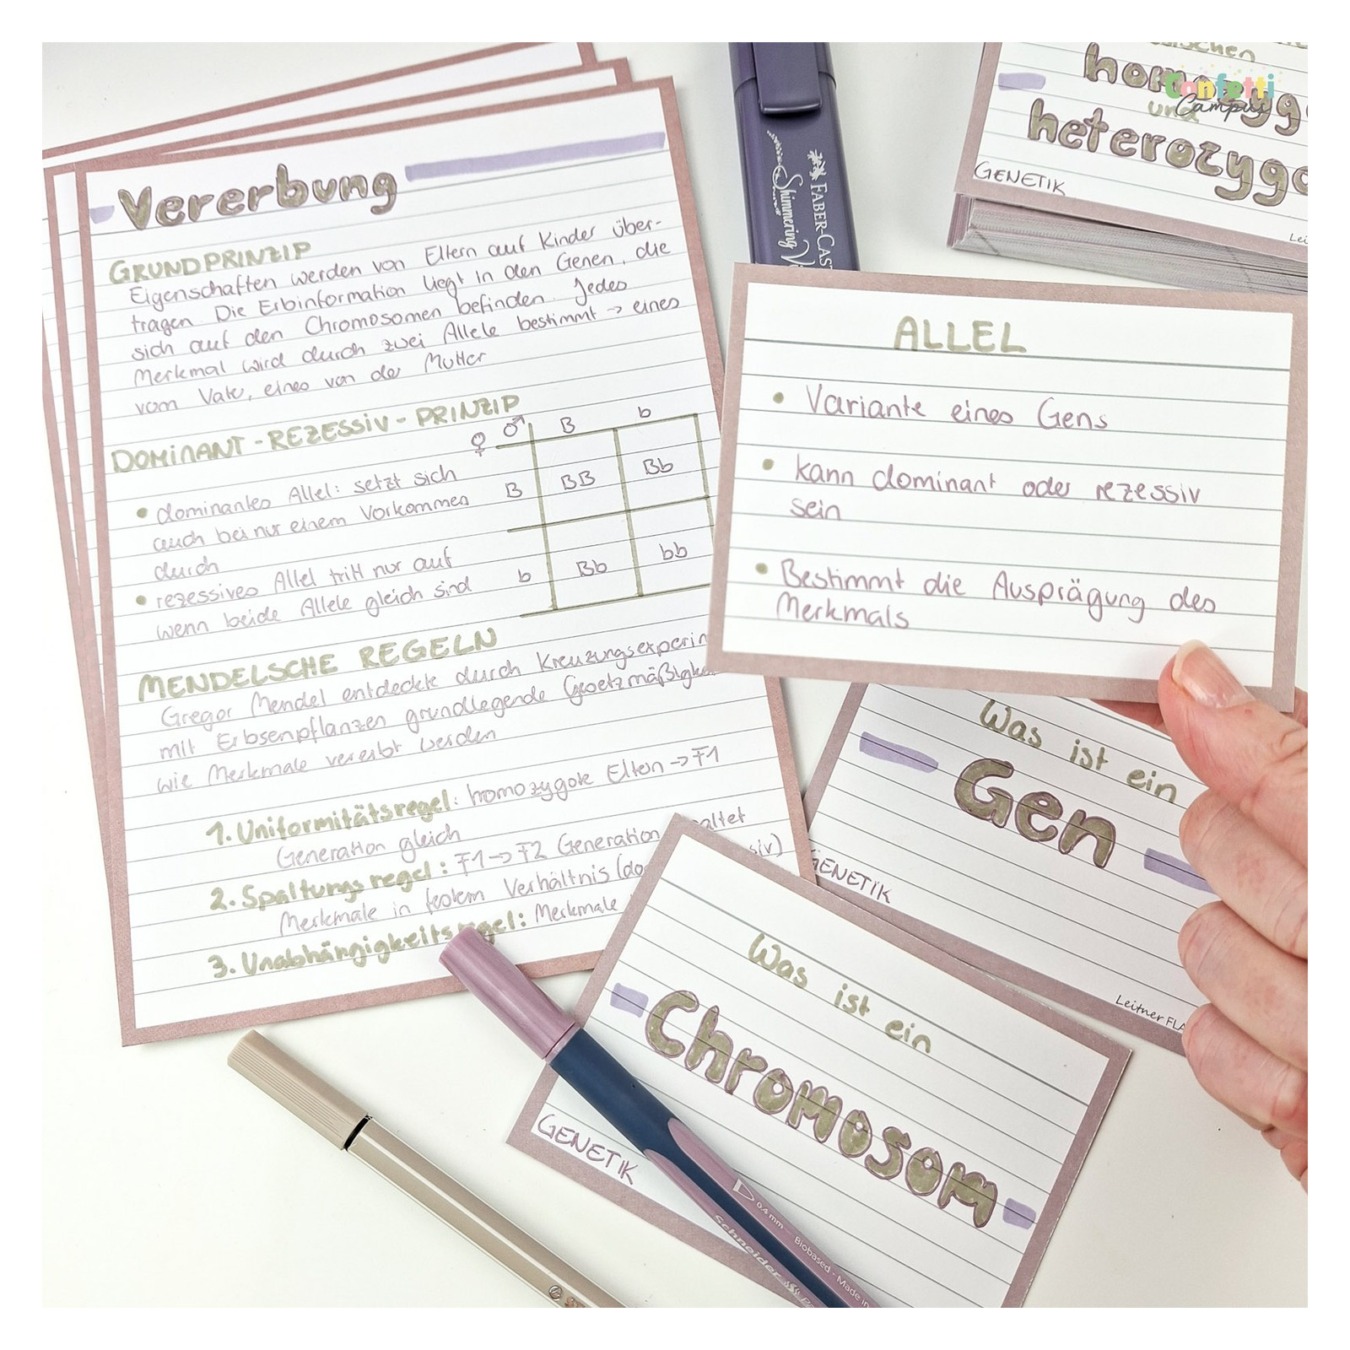 Vererbung
GRUNDPRINZIP
Eigenschaften werden von Eltern auf Kinder über-
tragen. Die Erbinformation liegt in den Genen, die
sich auf den Chromosomen befinden. Jedes
Merkmal wird durch zwei Allele bestimmt → eines
vom Vater, eines von der Mutter
DOMINANT-REZESSIV-PRINZIP
• dominantes Allel: setzt sich
auch bei nur einem Vorkommen
durch
• rezessives Allel tritt nur auf
wenn beide Allele gleich sind
♀ ♂ B b
B BB Bb
b Bb bb
MENDELSCHE REGELN
Gregor Mendel entdeckte durch
mit Erbsenpflanzen grundlegende
wie Merkmale vererbt werden
1. Uniformitätsregel: homozygote Eltern → F1
Generation gleich
2. Spaltungsregel: F1 → F2 Generation
Merkmale in festem Verhältnis
3. Unabhängigkeitsregel: Merkmale
FABER-CAST
Shimmering
homozyg
und
heterozygo
GENETIK
Confetti
Campus
ALLEL
• Variante eines Gens
• kann dominant oder rezessiv
sein
• Bestimmt die Ausprägung des
Merkmals
Was ist ein
Gen
GENETIK
Leitner FLA
Was ist ein
Chromosom
GENETIK
0.4 mm - Biobased - Made in
Schneider